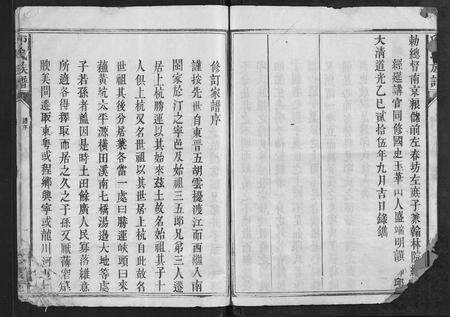 勅總督南京粮儲前左春坊左庶子兼翰林院
經進講官同修國史玉華山人盛端明譔
大清道光乙巳貳拾伍年九月吉日錄鐫
修訂家譜序
謹按先世自東晋五胡雲擾渡江而西繼入南
閩家於汀之寧邑及始祖三五郎兄弟三人遷
居上杭勝運以其始來茲土故名始祖其子十
人俱上杭又名世祖以其世居上杭自此故名
世祖其後分居業各當一處曰勝運峽頭曰來
蘓黄坑太平源橫田溪南七橋湯邉大地等處
子若孫者蓋因是時土田餘廣人民寡落維意
所適各得擇取而居之久之子孫又厭薄
腴美間遷取東粤或程鄉興寧或龍川河
族譜
譜序